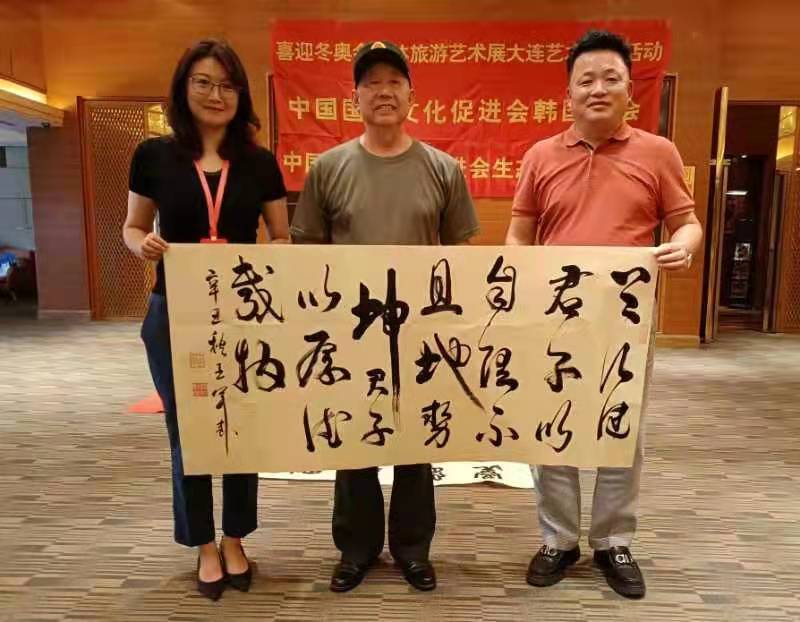 喜迎冬奥 体旅游艺术展大连艺 活动
中国国 文化促进会韩国 会
中国 进会生态
天行健
君子以
自强不
息地势
坤君子
以厚德
载物
辛丑秋王